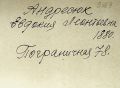 Андреюк
Евдокия Леонтьевна
1880.
Пограничная 78.